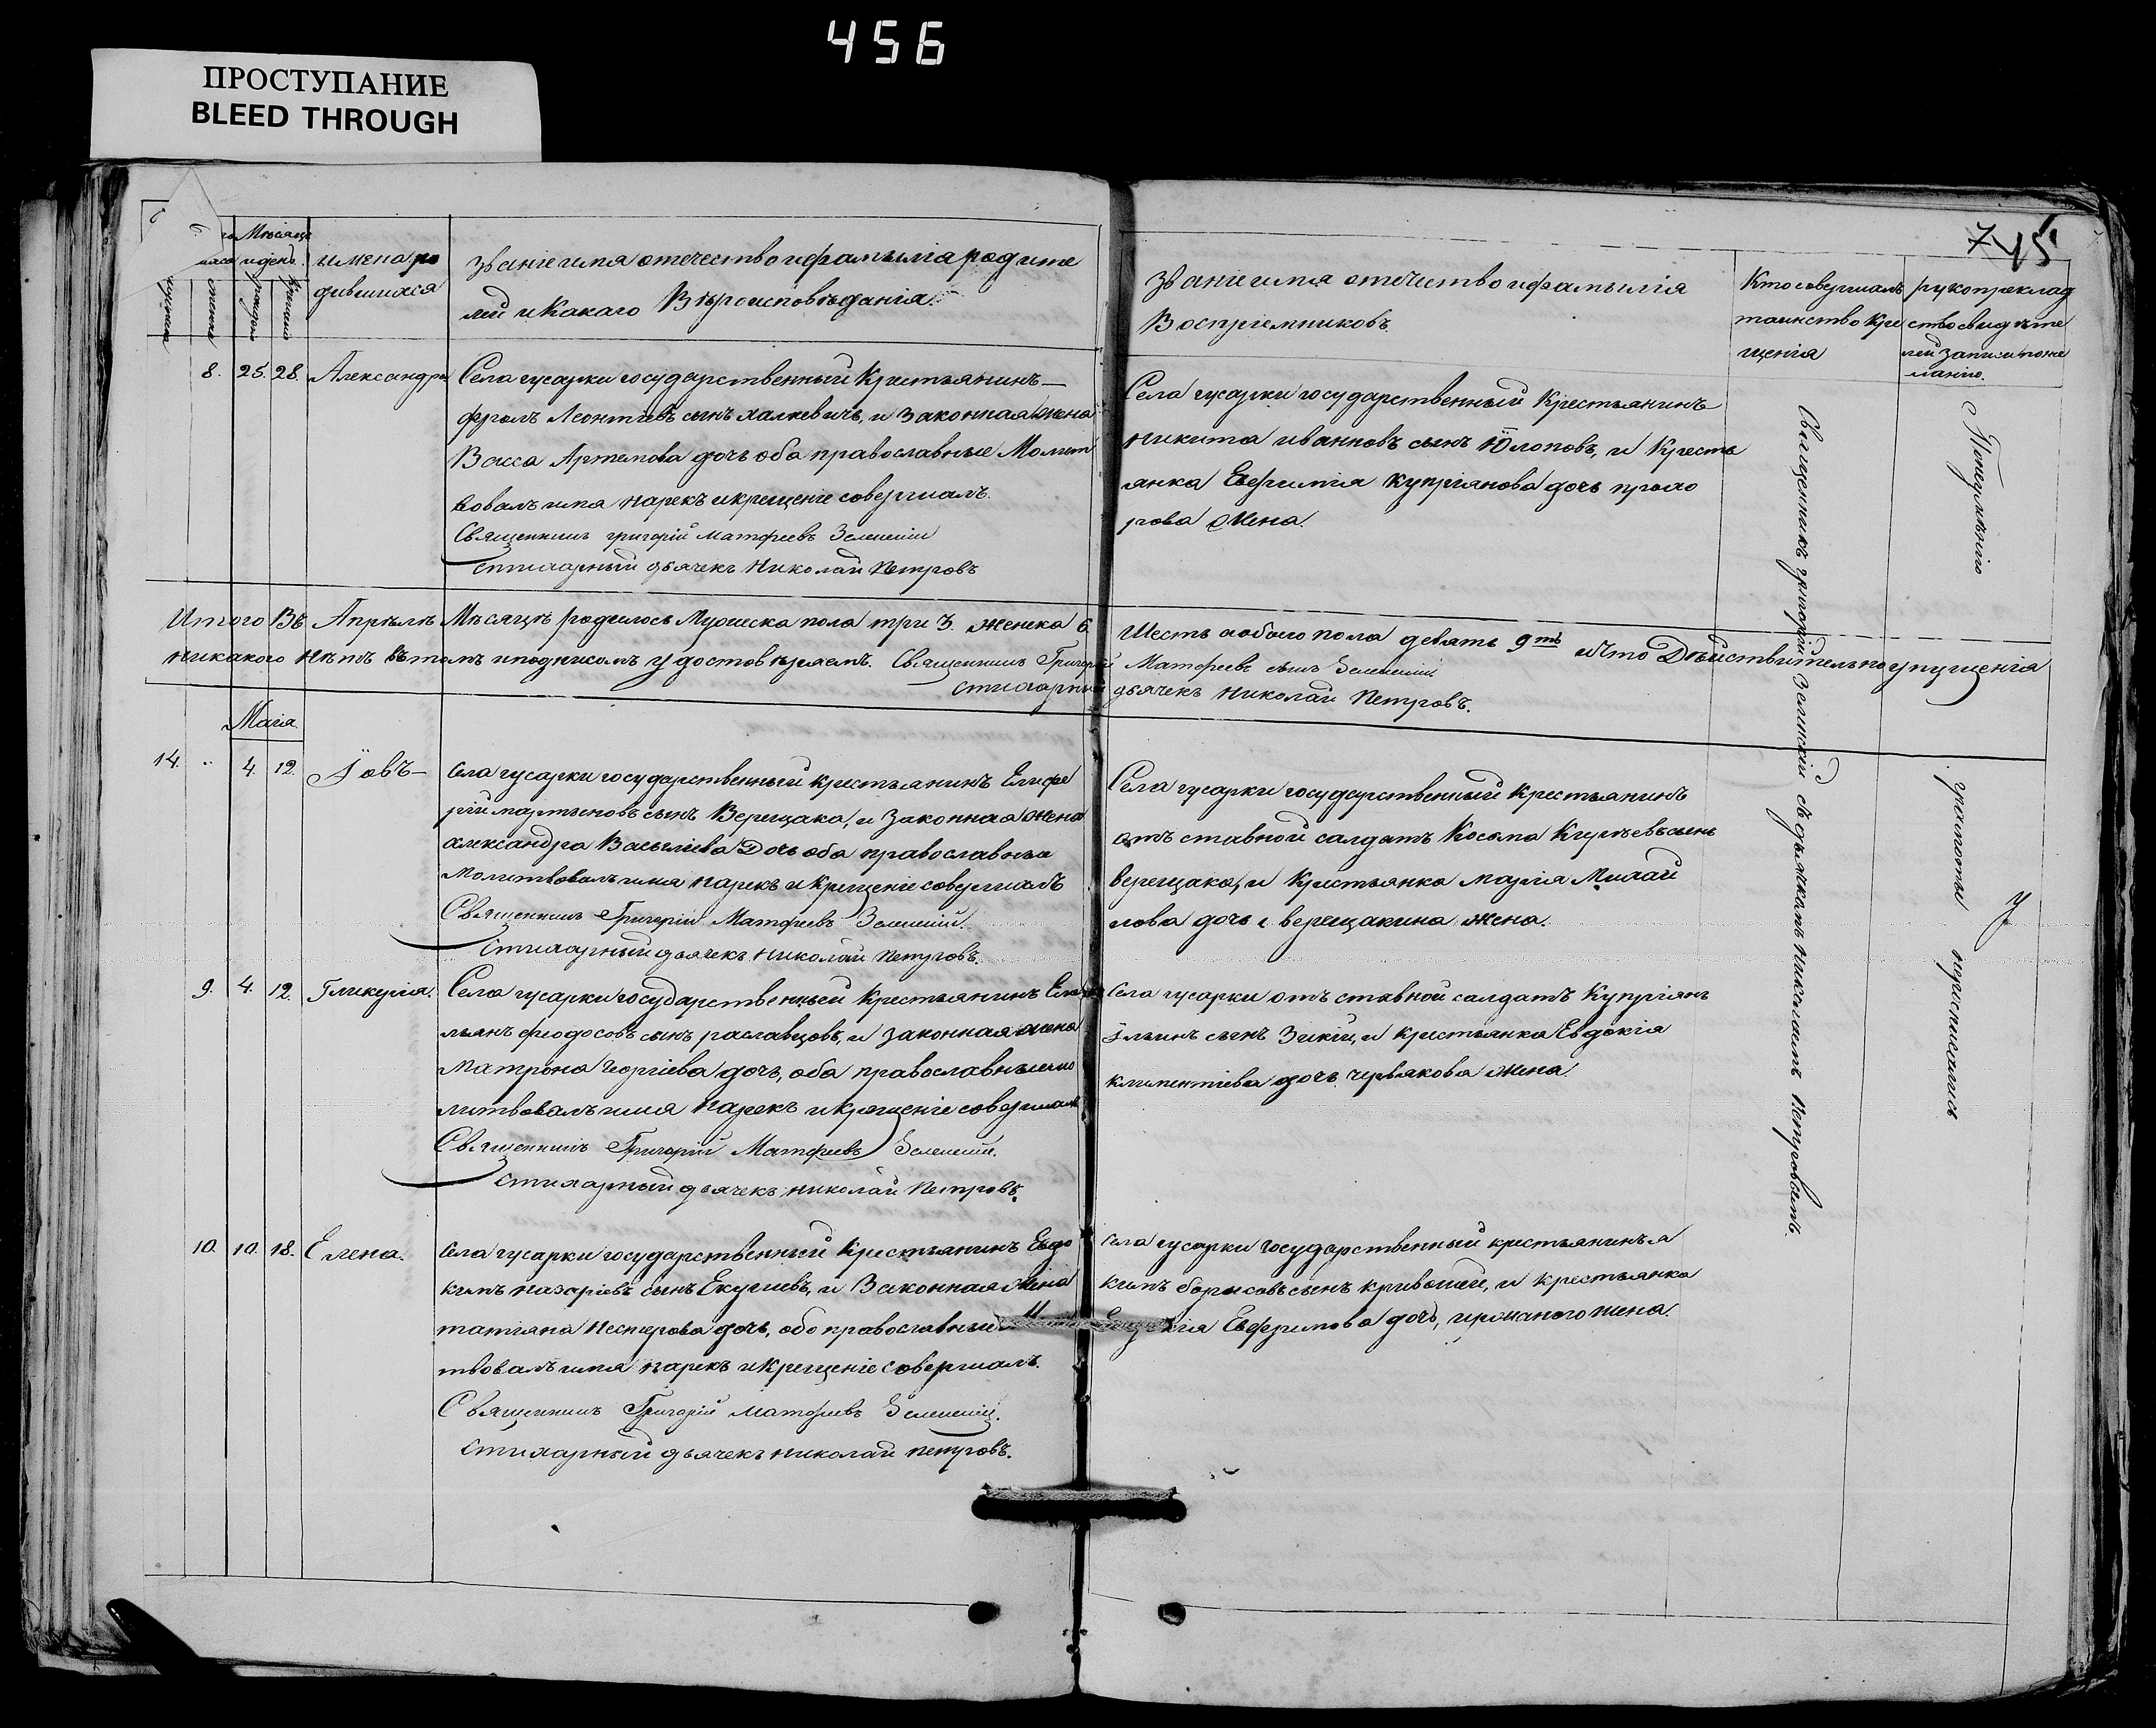 456
ПРОСТУПАНИЕ
BLEED THROUGH
745
Мѣсяцъ
и день.
имена ро
дившихся
званіе имя отечество и фамылія родите
лей и Какаго Вѣроисповѣданія.
званіе имя отечество и фамылія
Воспріемниковъ
Кто совершалъ
таинство Кре
щенія
рукоприклад
ство свидѣте
лей записи по же
ланію.
8. 25. 28. Александра
Села гусарки государственный Крестьянинъ
Фролъ Леонтіевъ сынъ халкевичъ, и Законная жена
Васса Артемова дочь оба православные Молит
вовалъ имя нарекъ и крещеніе совершалъ.
Священникъ григорій Матфеевъ
Стихарный дьячекъ Николай Петровъ
Села гусарки государственный Крестьянинъ
никита ивановъ сынъ и Кресть
янка Евфимія купріянова дочь прохо
рова жена.
Итого Въ Апрѣлѣ Мѣсяцѣ родилось Мужеска пола три 3. женска 6
Шесть а обоего пола девять 9ть и Что Дѣйствительно упущенія
никакого нѣтъ въ томъ и подписомъ удостовѣряемъ. Священникъ Григорій Матфеевъ сынъ
Стихарный дьячекъ Николай Петровъ.
Маія.
14. 4. 12. Іовъ
Села гусарки государственный крестьянинъ Елифе
рій мартыновъ сынъ Верещака, и Законная жена
александра Васыліева Дочь оба православные
Молитвовалъ имя нарекъ и Крещеніе совершалъ
Священникъ Григорій Матфеевъ
Стихарный дьячекъ Николай Петровъ.
Села гусарки государственный Крестьянинъ
отъ ставной салдатъ Косьма сынъ
верещака, и Крестьянка марія Михай
лова дочь верещакина жена.
9. 4. 12. Гликерія.
Села гусарки государственный Крестьянинъ Еме
льянъ феодосовъ сынъ раславцовъ, и законная жена
Матрона Георгіева дочь, оба православные мо
литвовалъ имя нарекъ и крещеніе совершалъ
Священникъ Григорій Матфеевъ
Стихарный дьячекъ Николай Петровъ.
Села гусарки отъ ставной салдатъ Купріянъ
ільинъ сынъ Зикій, и крестьянка Евдокія
климентіева дочь червякова жена.
10. 10. 18. Елена.
Села гусарки государственный Крестьянинъ Евдо
кимъ назаріевъ сынъ и Законная жена
татіяна Нестерова дочь, обо православные
твовалъ имя нарекъ и Крещеніе совершалъ.
Священникъ Григорій Матфеевъ
Стихарный дьячекъ николай петровъ.
Села гусарки государственный крестьянинъ я
кимъ борисовъ сынъ кривошей, и крестьянка
Евфимова дочь, жена.
Священникъ григорій съ дьячкомъ Николаемъ Петровымъ.